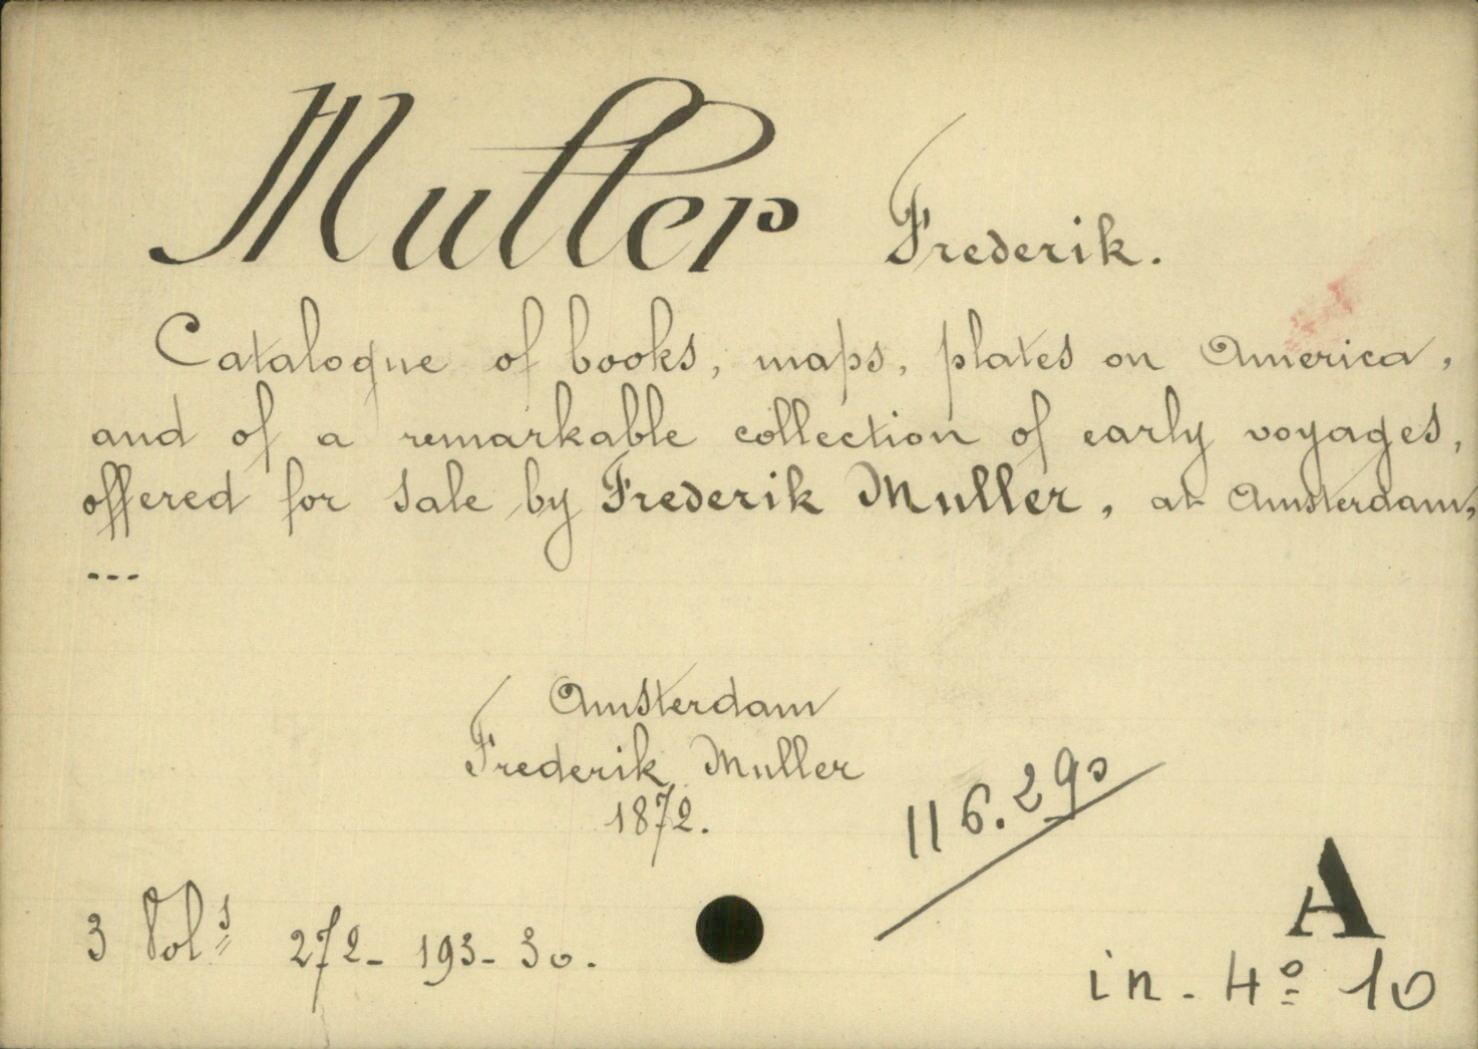 Muller Frederik.
Catalogue of books, maps, plates on America,
and of a remarkable collection of early voyages,
offered for sale by Frederik Muller, at Amsterdam,
---
Amsterdam
Frederik Muller
1872.
116.290
3 Vol.s 272- 193- 30.
A
in-4º 10